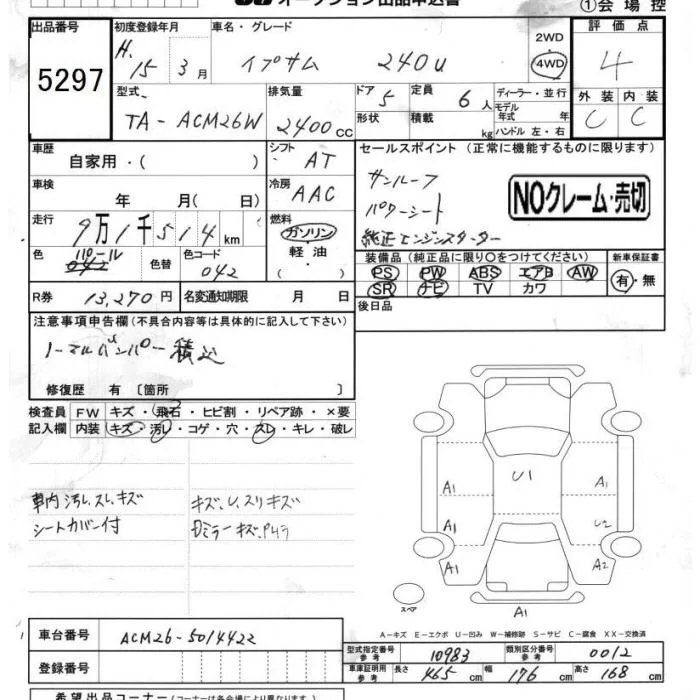 オークション出品申込書
①会場控
出品番号
5297
初度登録年月
H. 15年 3月
車名・グレード
イプサム 240u
2WD
4WD
評価点
4
外装 内装
C C
型式
TA-ACM26W
排気量
2400cc
ドア 5
定員 6人
形状
積載 kg
ディーラー・並行
モデル年式 年
ハンドル 左・右
車歴
自家用・( )
シフト AT
車検
年 月( 日)
冷房 AAC
走行
9万1千514km
燃料
ガソリン
軽油
・( )
色
パール
042
色替
色コード 042
R券 13,270円
名変通知期限 月 日
セールスポイント (正常に機能するものに限ります)
サンルーフ
パワーシート
純正エンジンスターター
NOクレーム・売切
装備品 (純正品に限り○をつけてください)
新車保証書
PS PW ABS エアB AW
SR ナビ TV カワ
有・無
後日品
注意事項申告欄 (不具合内容等は具体的に記入して下さい)
ノーマルバンパー積込
修復歴 有 〔箇所 〕
検査員記入欄
FW キズ・飛石・ヒビ割・リペア跡・×要
内装 キズ・汚レ・コゲ・穴・スレ・キレ・破レ
車内汚レ、スレ、キズ
シートカバー付
キズ、U、スリキズ
U1
A1
A1
U2
A1
A2
A1
スペア
A1
A-キズ E-エクボ U-凹み W-補修跡 S-サビ C-腐食 XX-交換済
車台番号 ACM26-5014422
登録番号
型式指定番号 参考 10983
類別区分番号 参考 0012
車庫証明用 参考 長さ 465cm 幅 176cm 高さ 168cm
希望出品コーナー (コーナー名は各会場により異なります)